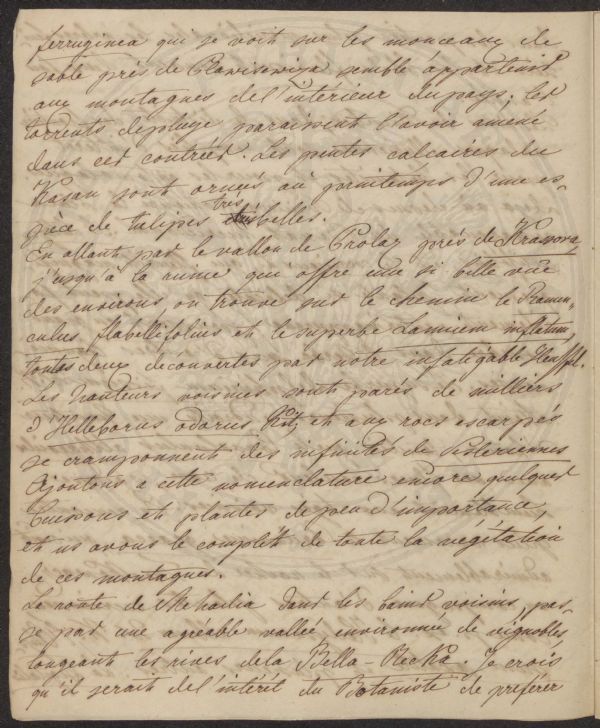 ferruginea qui se voit sur les monceaux de
sable près de Plawisewiza semble appartenir
aux montagnes de l'intérieur du pays; les
torrents de pluye paraissent l'avoir amené
dans ces contrées. Les pentes calcaires du
Kasan sont ornées au printemps d'une es-
pèce de tulipes très belles.
En allant par le vallon de Prolaz près de Krasova,
j'usqu'à la ruine qui offre une si belle vue
des environs on trouve sur le chemin le Ranun-
culus flabellifolius et le superbe Lamium inflatum,
toutes deux découvertes par notre infatigable Heuffel.
Les hauteurs voisines sont parés de milliers
d'Helleborus odorus Kit, et aux rocs escarpés
se cramponnent des infinités de Veslériennes
Ajoutons a cette nomenclature encore quelques
buissons et plantes de peu d'importance,
et ns avons le complét de toute la végétation
de ces montagnes.
La route de Mehadia dans les bains voisins, pas-
se par une agréable vallée, environnée de vignobles,
longeant les rives de la Bella-Recka. Je crois
qu'il serait de l'intérêt du Botaniste de préférer